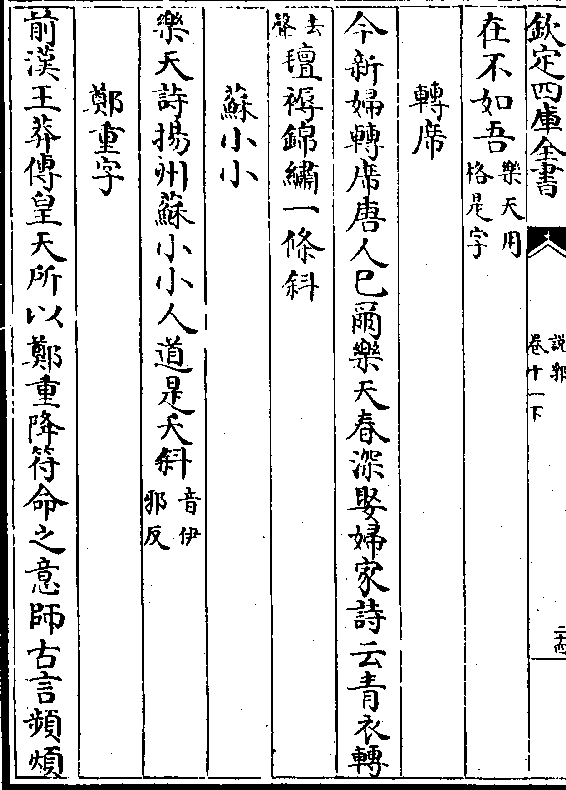 欽定四庫全書
說郛
卷十一下
二十四
在不如吾樂天用格是字
轉席
今新婦轉席唐人已爾樂天春深娶婦家詩云青衣轉
去聲氊褥錦繡一條斜
蘇小小
樂天詩揚州蘇小小人道是夭斜音伊邪反
鄭重字
前漢王莽傳皇天所以鄭重降符命之意師古言頻煩